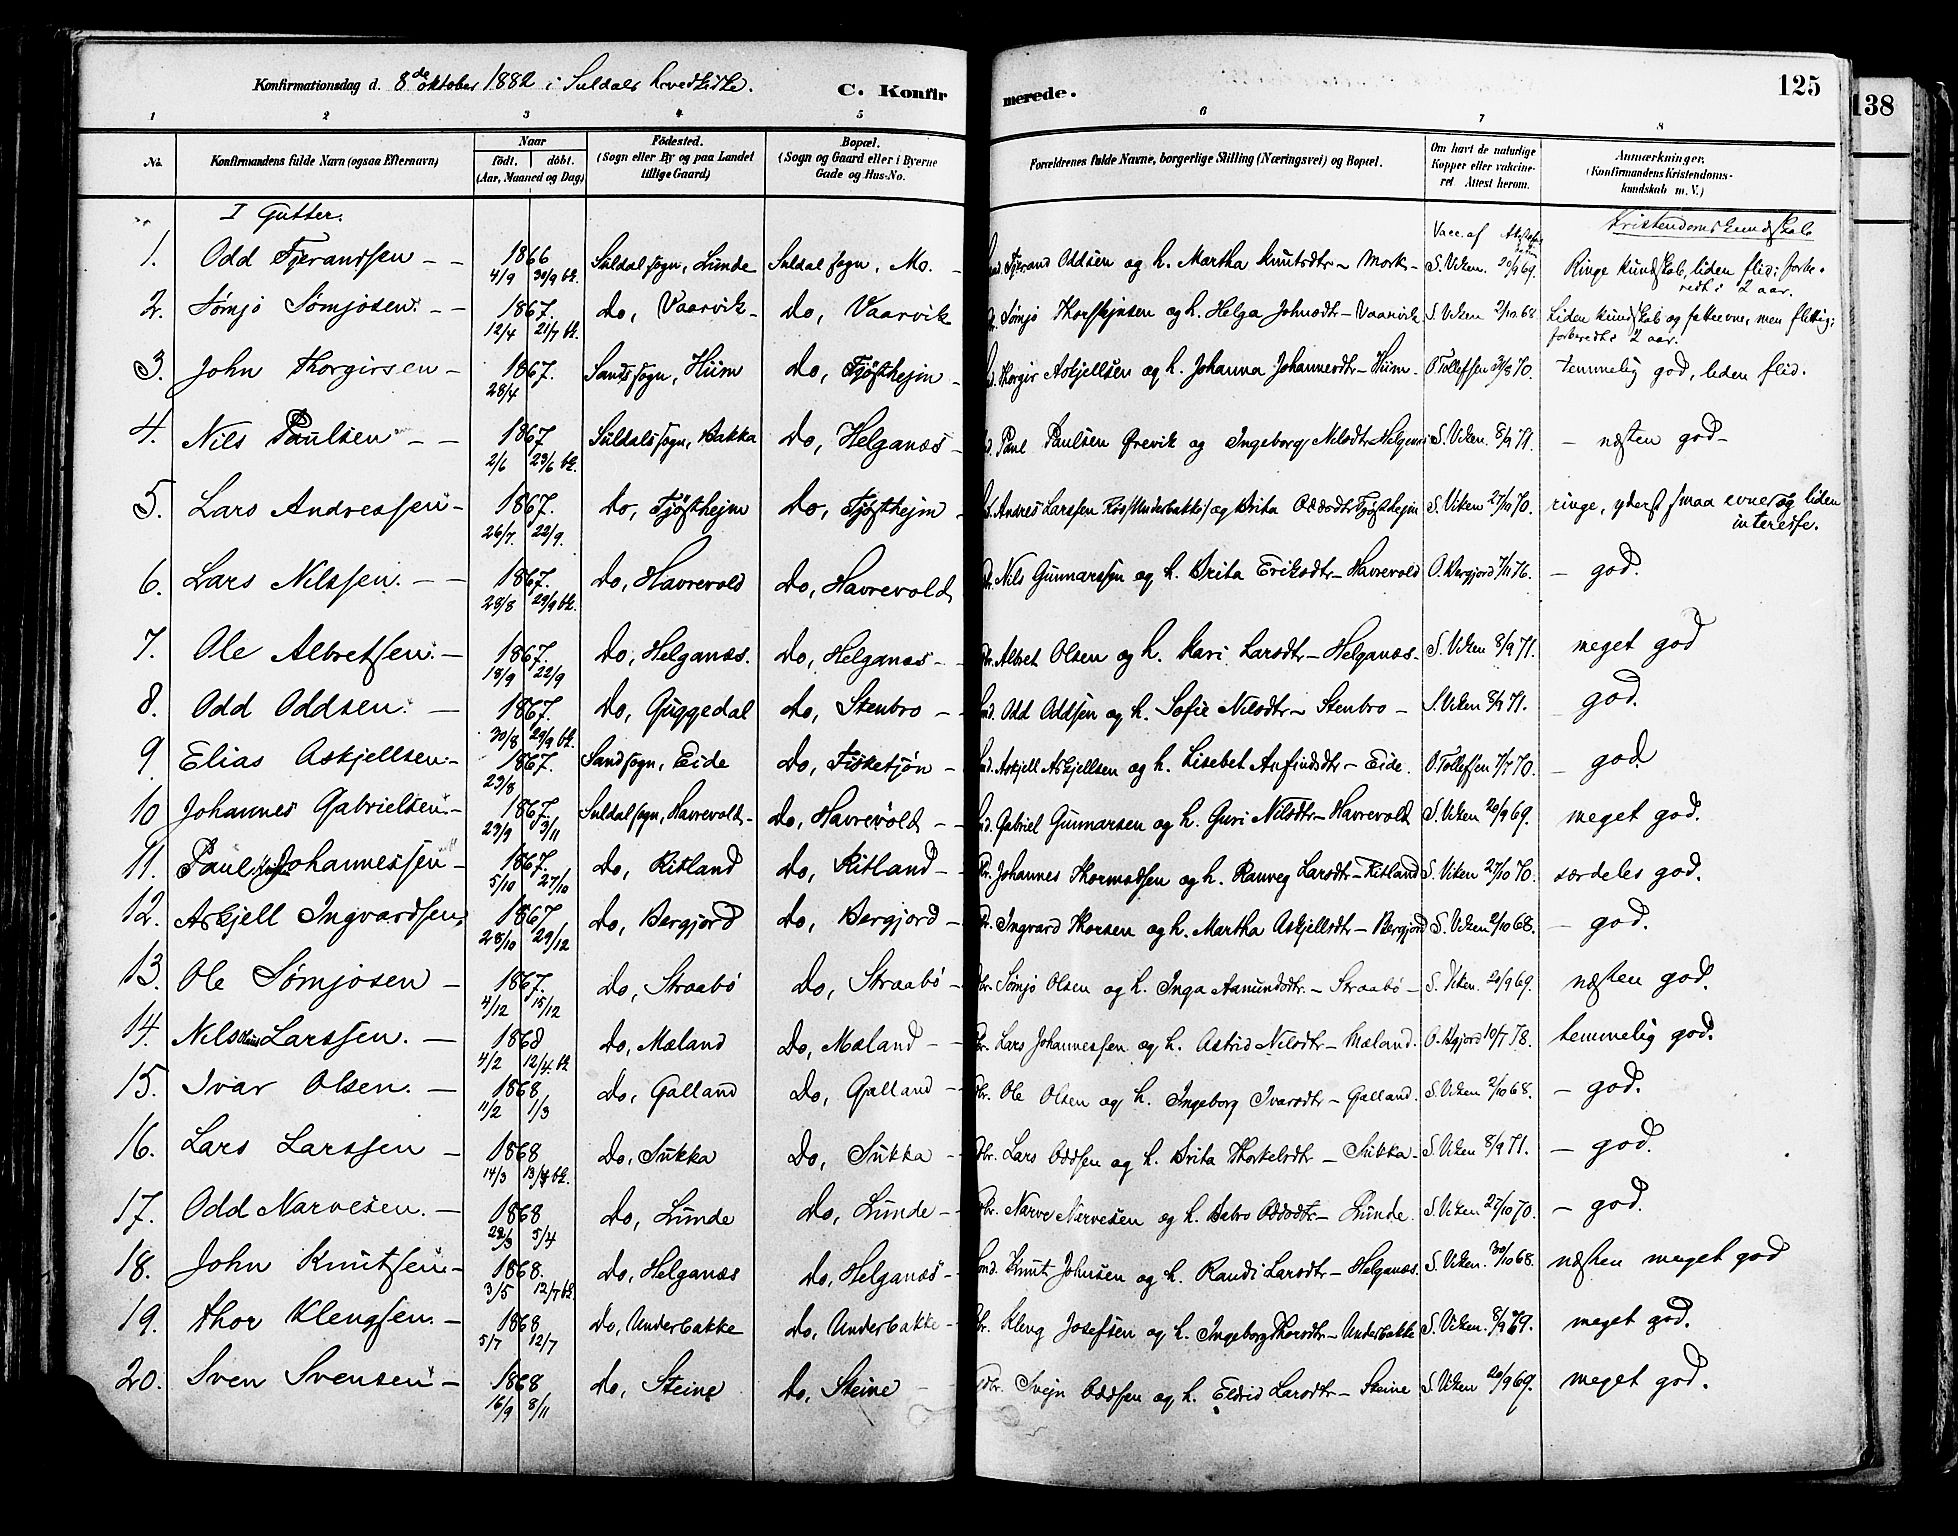 Konfirmationsdag d. 8de oktober 1882 i Suldals hovedkirke.
C. Konfir merede.
125
138
1 2 3 4 5 6 7 8
No.
Konfirmandens fulde Navn (ogsaa Efternavn)
Naar
födt. döbt.
(Aar, Maaned og Dag)
Födested.
(Sogn eller By og paa Landet
tillige Gaard)
Bopæl.
(Sogn og Gaard eller i Byerne
Gade og Hus-No.
Forældrenes fulde Navne, borgerlige Stilling (Næringsvei) og Bopæl.
Om havt de naturlige
Kopper eller vakcine-
ret Attest herom.
Anmærkninger.
(Konfirmandens Kristendoms-
kundskab m. V.)
I Gutter.
Vacc. af
Kristendomskundskab
1. Odd Tjerandsen - - 1866 4/9 30/9 bl. Suldalsogn, Lunde Suldalsogn, Mo. - Tjerand Oddsen og h. Martha Knutsdtr - Mork - S. Viken. 20/9 69. Ringe kundskab, liden flid; forbe-
redt i 2 aar.
2. Sømjo Sømjosen. - - 1867. 12/4 21/7 bl. do, Vaarvik - do, Vaarvik Sømjo Thorstejnsen og h. Helga Johnsdtr - Vaarvik S. Viken 2/10 68. Liden kundskab og fatteevne, men flittig;
forberedt i 2 aar.
3. John Thorgirsen - 1867. 28/4 Sandsogn, Hiim do, Tjöstheim - Thorgir Askjellsen og h. Johanna Johannesdtr - Hiim - O Tollefsen 31/8 70. temmelig god, liden flid.
4. Nils Paulsen - - 1867 2/6 23/6 bl. Suldalsogn, Bakka do, Helganæs - Paul Paulsen Ørevik og Ingeborg Nilsdtr Helganæs S. Viken. 8/9 71. - næsten god -
5. Lars Andreassen - 1867. 26/7. 22/9. do, Tjöstheim do, Tjöstheim - Andreas Larssen Ros (Underbakke) og Brita Oddsdtr Tjöstheim S. Viken 27/10 70. ringe, yderst smaa evner og liden
interesse.
6. Lars Nilssen. - - 1867. 28/8 29/9 bl. do, Havrevold do, Havrevold Nils Gunnarssen og h. Brita Eriksdtr - Havrevold O. Bergjord 7/11 76. - god.
7. Ole Albretsen. - 1867. 18/9 22/9 do, Helganæs. do, Helganæs - - Albret Olsen og h. Kari Larsdtr - Helganæs - S. Viken 8/9 71. meget god
8. Odd Oddsen. - 1867. 30/8 29/9 bl. do, Guggedal do, Stenbro - - Odd Oddsen og h. Sofie Nilsdtr - Stenbro - S. Viken 8/9 71. god.
9. Elias Askjellsen. - 1867. 23/8 Sandsogn, Eide do, Fisketjøn - Askjell Askjellsen og h. Lisebet Anfindsdtr - Eide. O. Tollefsen 7/7 70. - god
10 Johannes Gabrielsen. - 1867. 23/9 3/11 Suldalsogn, Havrevold - do, Havrevold - - Gabriel Gunnarsen og h. Guri Nilsdtr - Havrevold S. Viken 20/9 69. meget god.
11. Paul Johannessen - 1867. 5/10 27/10 do, Ritland do, Ritland - - Johannes Thormodsen og h. Ranveg Larsdtr - Ritland S. Viken 27/10 70. særdeles god.
12. Askjell Ingvardsen, 1867 28/10 29/12 do, Bergjord do, Bergjord - Ingvard Thorsen og h. Martha Askjellsdtr - Bergjord S. Viken 2/10 68. - god.
13. Ole Sømjosen - 1867. 4/12 15/12 do, Straabø do, Straabø - Sømjo Olsen og h. Inga Aamundsdtr. - Straabø - S. Viken. 20/9 69. næsten god.
14. Nils Larssen. - 1868 4/2 12/4 bl do, Mæland do, Mæland - - Lars Johannessen og h. Astrid Nilsdtr - Mæland. O. Bgjord 10/7 78. temmelig god.
15. Ivar Olsen. - 1868 11/2 1/3 do, Galland do, Galland - - Ole Olsen og h. Ingeborg Ivarsdtr - Galland. S. Viken 2/10 68. - god.
16. Lars Larssen - 1868 14/3 13/4 bl. do, Sukka do, Sukka - Lars Oddsen og h. Brita Thorkelsdtr - Sukka - S. Viken 8/9 71. - god.
17. Odd Narvesen. - 1868 5/4 do, Lunde do, Lunde - - Narve Narvesen og h. Babro Oddsdtr - Lunde. S. Viken. 27/10 70. - god.
18. John Knutsen. - 1868. 3/5 12/7 bl. do, Helganæs do, Helganæs - - Knut Johnsen og h. Randi Larsdtr - Helganæs. S. Viken. 30/10 68. næsten meget god
19. Thor Klengsen. - 1868 5/7 12/7 do, Underbakke do, Underbakke - Kleng Josefsen og h. Ingeborg Thorsdtr - Underbakke S. Viken. 8/9 69. meget god.
20. Sven Svensen - 1868 16/9 8/11 do, Steine do, Steine - Svejn Oddsen og h. Eldrid Larsdtr - Steine S. Viken 20/9 69. meget god.